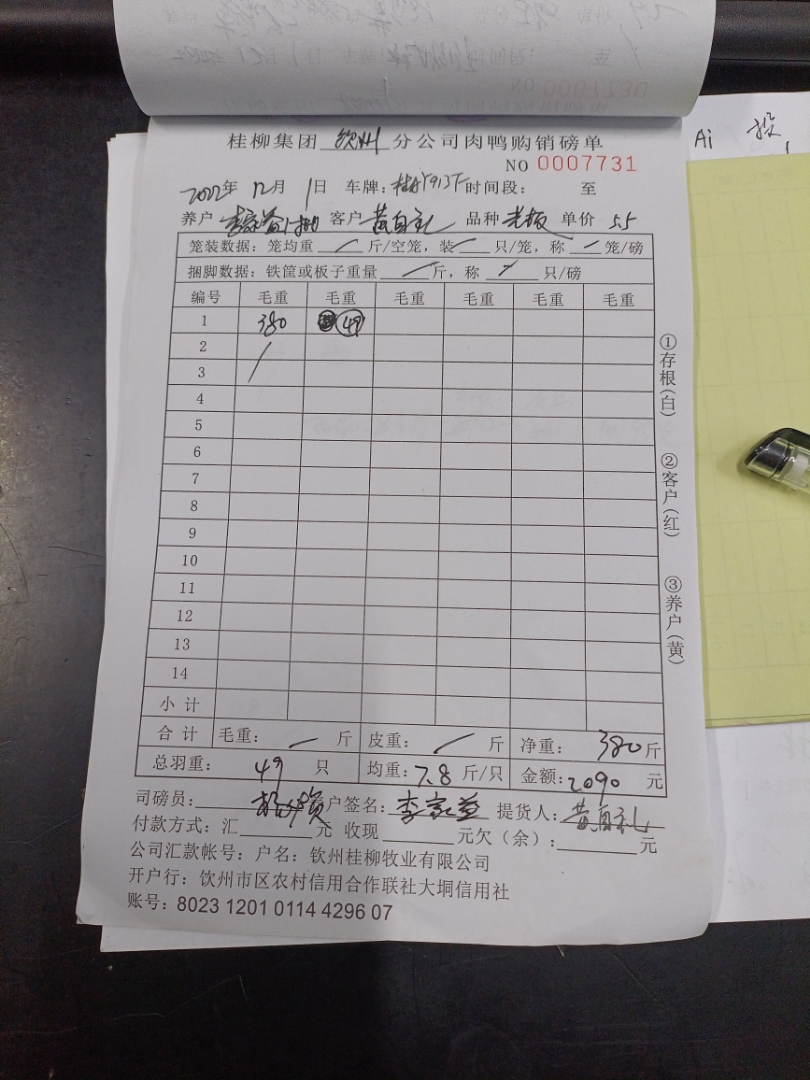 桂柳集团 钦州 分公司肉鸭购销磅单
NO 0007731
2022年 12月 1日 车牌: 时间段: 至
养户 李家益 客户 黄自礼 品种 老板 单价 5.5
笼装数据: 笼均重 / 斤/空笼, 装 / 只/笼, 称 / 笼/磅
捆脚数据: 铁筐或板子重量 / 斤, 称 / 只/磅
编号 毛重 毛重 毛重 毛重 毛重 毛重
1 380 49
2 /
3
4
5
6
7
8
9
10
11
12
13
14
小计
合计 毛重: / 斤 皮重: / 斤 净重: 380斤
总羽重: 49 只 均重: 7.8 斤/只 金额: 2090 元
司磅员: 户签名: 李家益 提货人: 黄自礼
付款方式: 汇 元 收现 元欠(余): 元
公司汇款帐号: 户名: 钦州桂柳牧业有限公司
开户行: 钦州市区农村信用合作联社大垌信用社
账号: 8023 1201 0114 4296 07
①存根(白)
②客户(红)
③养户(黄)
Ai 投
NO 0007730